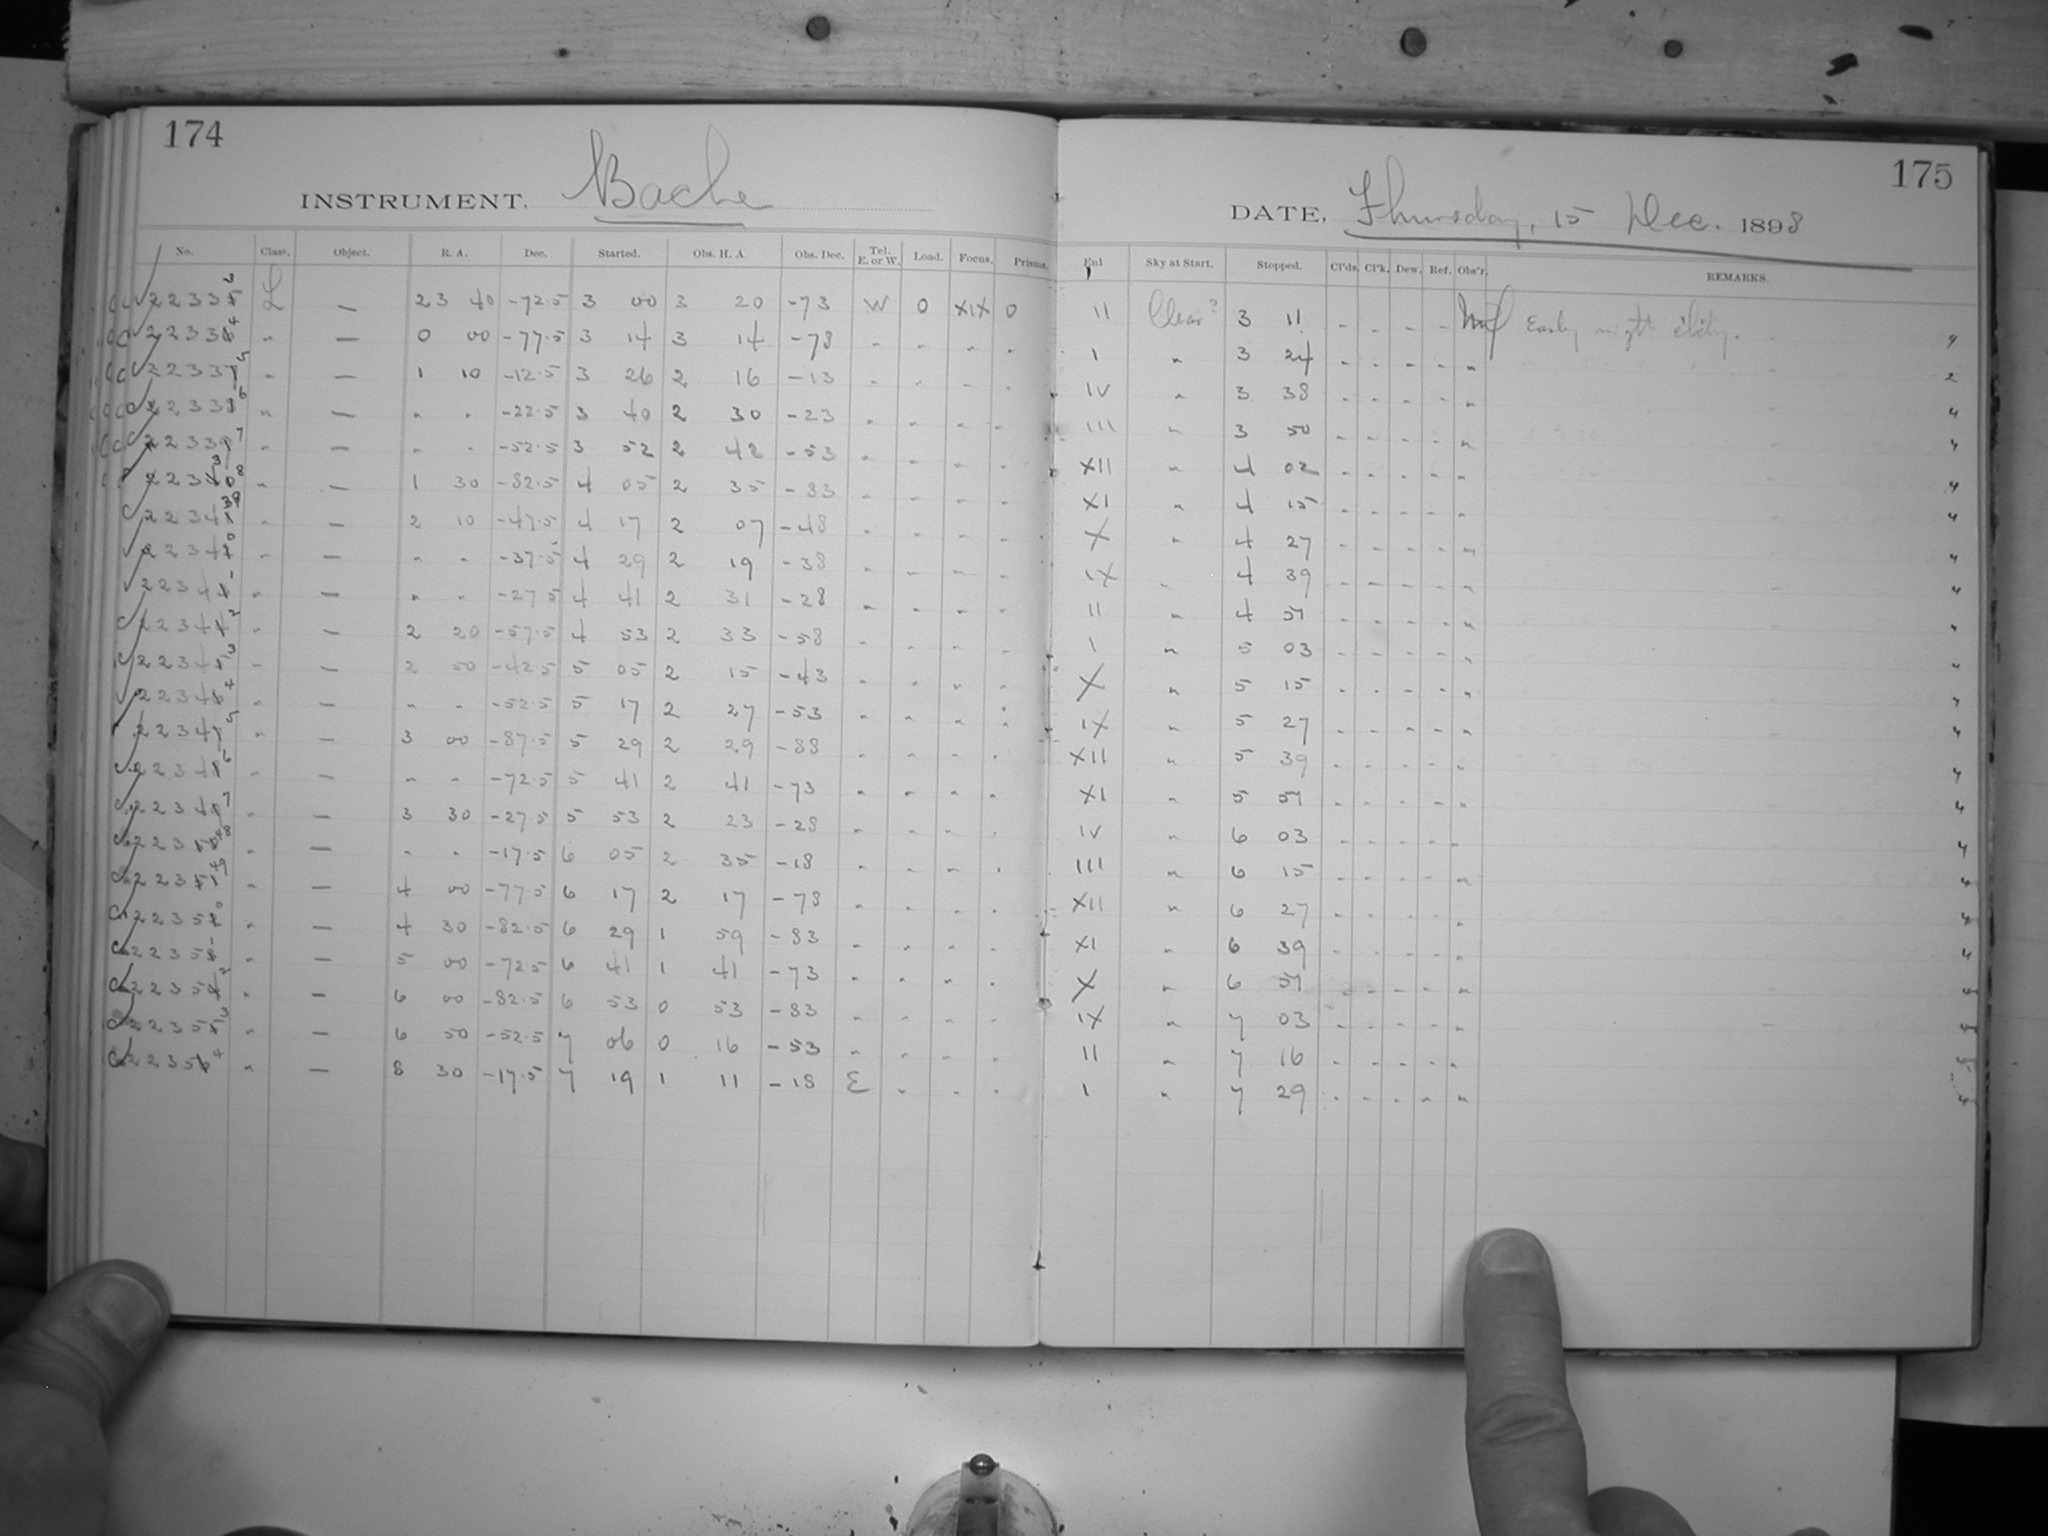 174
INSTRUMENT. Bache
No. Class. Object. R. A. Dec. Started. Obs. H. A. Obs. Dec. Tel. E. or W. Load. Focus. Prisms.
22335 3 L — 23 40 -72.5 3 00 3 20 -73 W 0 XIX 0
22336 4 " — 0 00 -77.5 3 14 3 14 -78 " " " "
22337 5 " — 1 10 -12.5 3 26 2 16 -13 " " " "
22338 6 " — " " -22.5 3 40 2 30 -23 " " " "
22339 7 " — " " -52.5 3 52 2 42 -53 " " " "
22340 38 " — 1 30 -82.5 4 05 2 35 -83 " " " "
22341 39 " — 2 10 -47.5 4 17 2 07 -48 " " " "
22342 0 " — " " -37.5 4 29 2 19 -38 " " " "
22343 1 " — " " -27.5 4 41 2 31 -28 " " " "
22344 2 " — 2 20 -57.5 4 53 2 33 -58 " " " "
22345 3 " — 2 50 -42.5 5 05 2 15 -43 " " " "
22346 4 " — " " -52.5 5 17 2 27 -53 " " " "
22347 5 " — 3 00 -87.5 5 29 2 29 -88 " " " "
22348 6 " — " " -72.5 5 41 2 41 -73 " " " "
22349 7 " — 3 30 -27.5 5 53 2 23 -28 " " " "
22350 48 " — " " -17.5 6 05 2 35 -18 " " " "
22351 49 " — 4 00 -77.5 6 17 2 17 -78 " " " "
22352 0 " — 4 30 -82.5 6 29 1 59 -83 " " " "
22353 1 " — 5 00 -72.5 6 41 1 41 -73 " " " "
22354 2 " — 6 00 -82.5 6 53 0 53 -83 " " " "
22355 3 " — 6 50 -52.5 7 06 0 16 -53 " " " "
22356 4 " — 8 30 -17.5 7 19 1 11 -18 E " " "
175
DATE. Thursday, 15 Dec. 1898
Sky at Start. Stopped. Cl'ds. Cl'k. Dew. Ref. Obs'r. REMARKS.
II Clear? 3 11 - - - - Early night
I " 3 24 - - - - "
IV " 3 38 - - - - "
III " 3 50 - - - - "
XII " 4 02 - - - - "
XI " 4 15 - - - - "
X " 4 27 - - - - "
IX " 4 39 - - - - "
II " 4 51 - - - - "
I " 5 03 - - - - "
X " 5 15 - - - - "
IX " 5 27 - - - - "
XII " 5 39 - - - - "
XI " 5 51 - - - - "
IV " 6 03 - - - - "
III " 6 15 - - - - "
XII " 6 27 - - - - "
XI " 6 39 - - - - "
X " 6 51 - - - - "
IX " 7 03 - - - - "
II " 7 16 - - - - "
I " 7 29 - - - - "